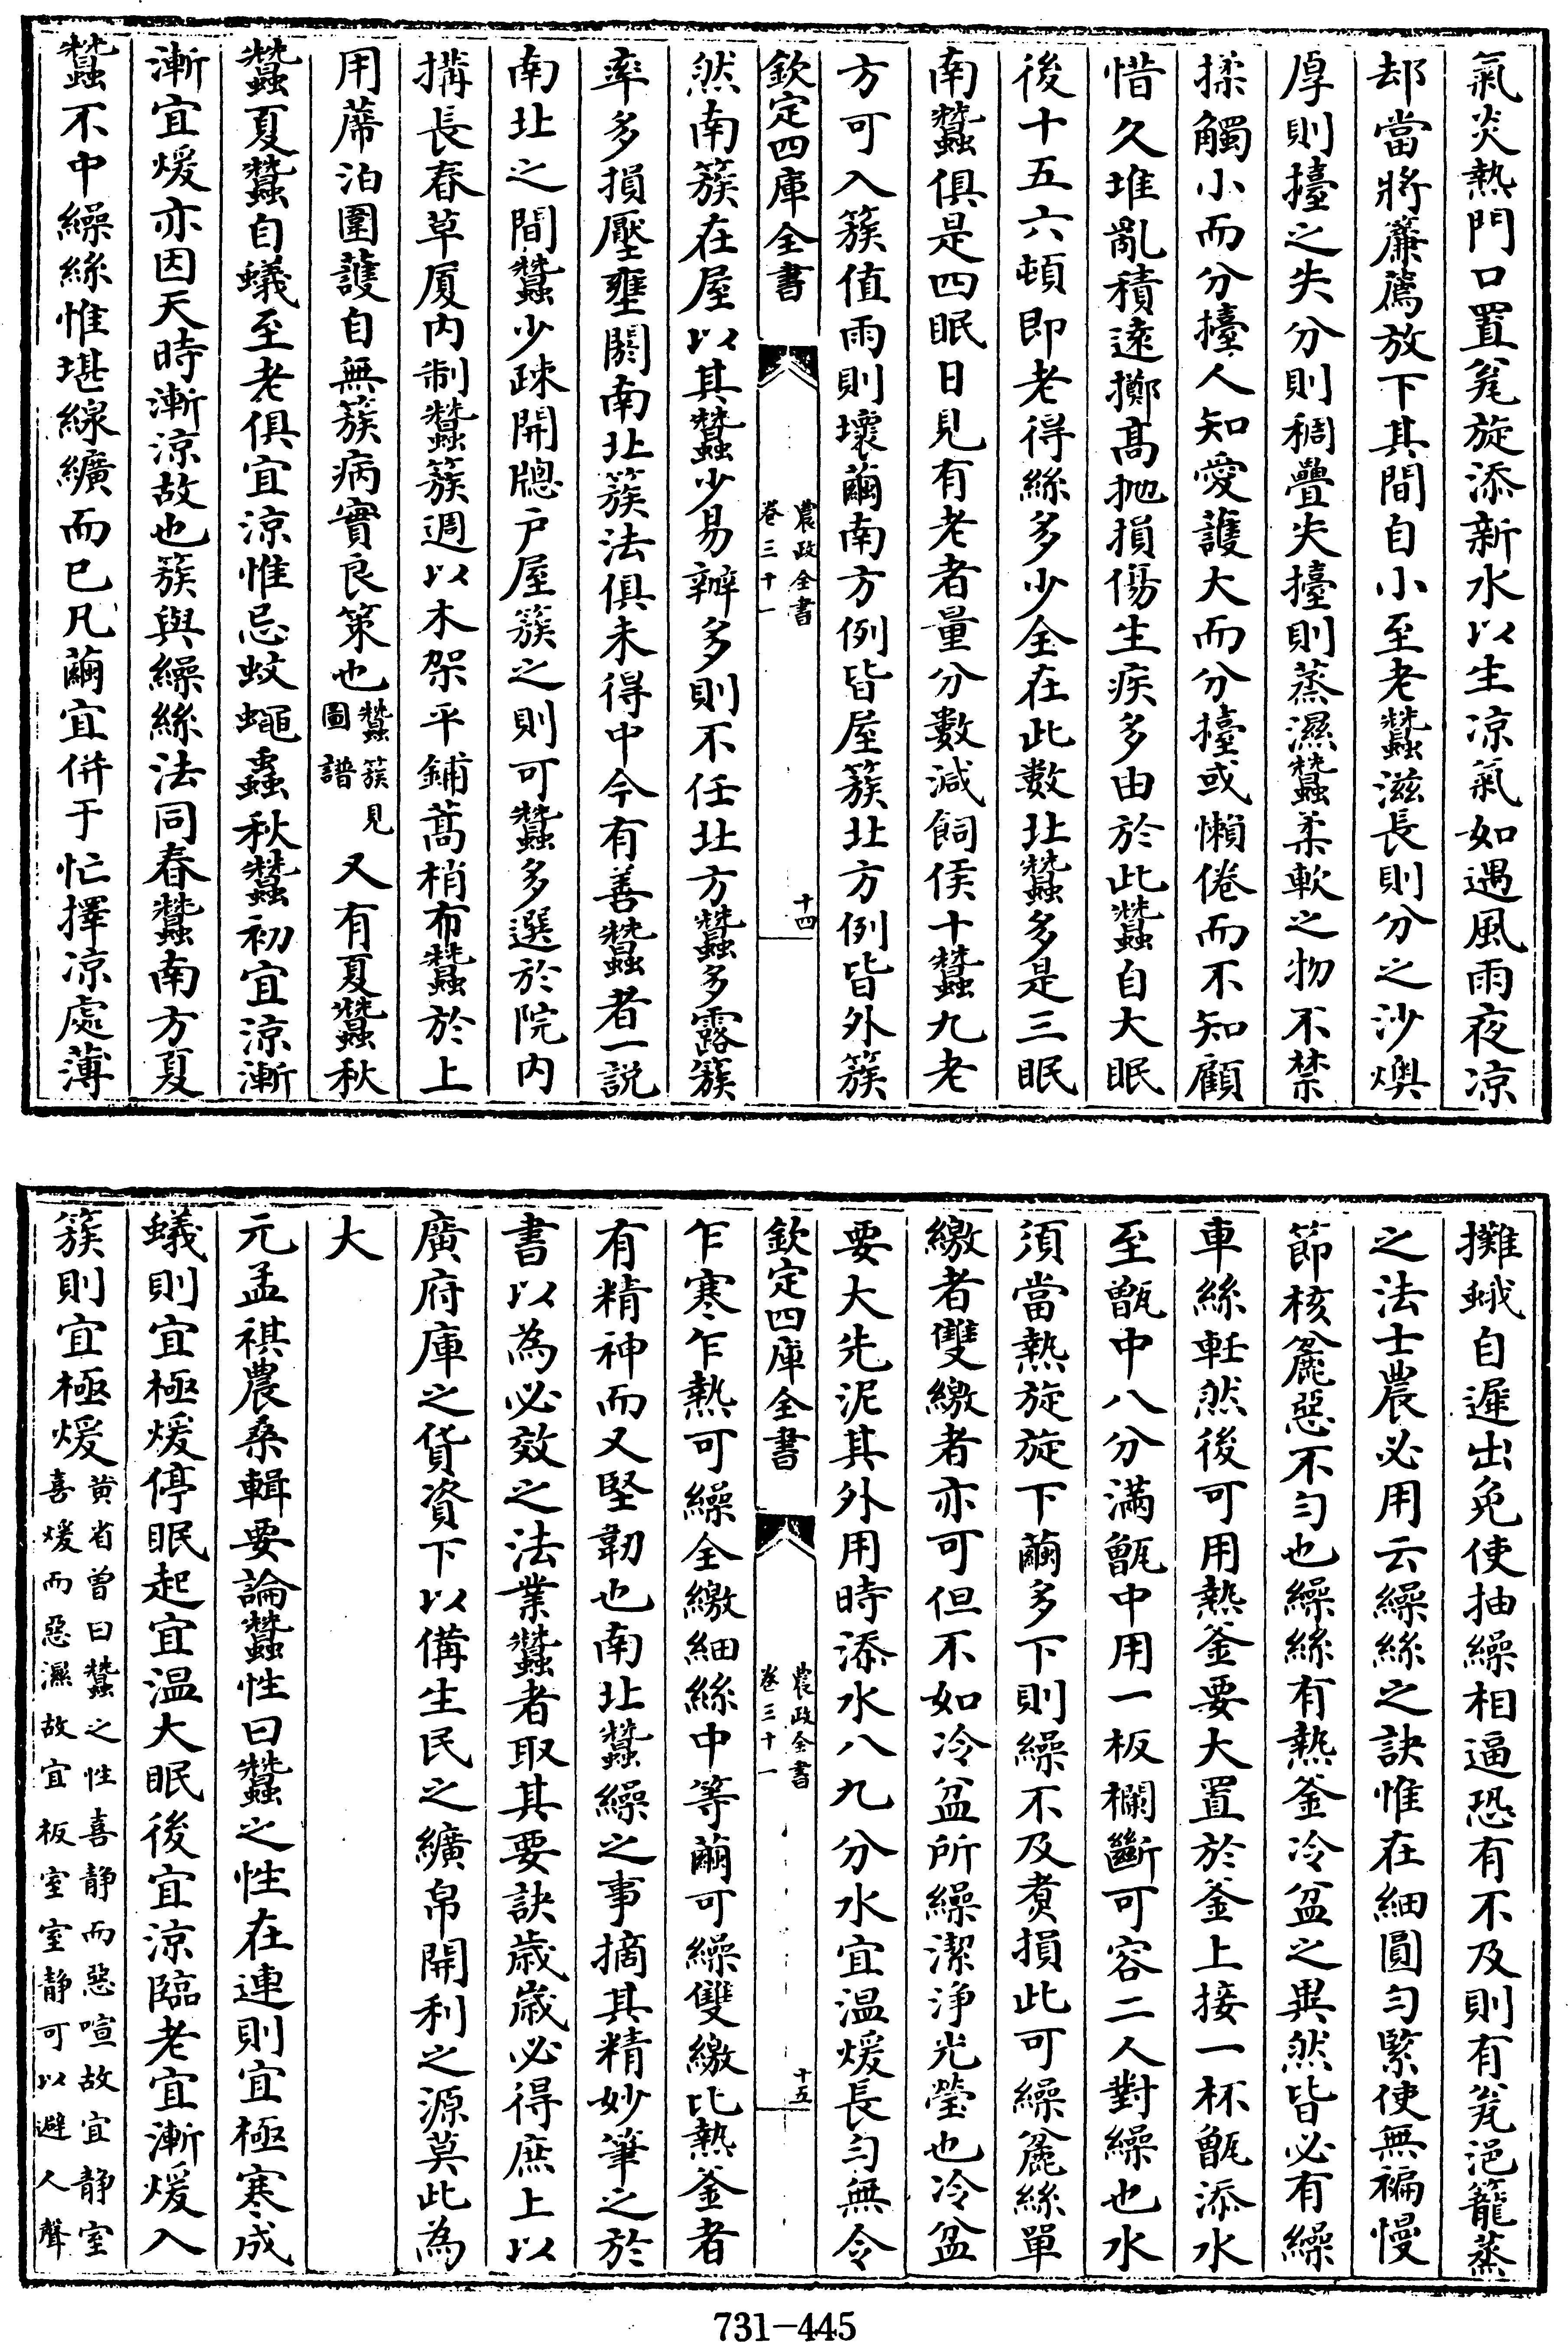 氣炎熱門口置瓮旋添新水以生凉氣如遇風雨夜凉
却當將簾薦放下其間自小至老蠶滋長則分之沙燠
厚則擡之失分則稠疊失擡則蒸濕蠶柔軟之物不禁
揉觸小而分擡人知愛護大而分擡或懶倦而不知顧
惜久堆亂積遠擲高抛損傷生疾多由於此蠶自大眠
後十五六頓即老得絲多少全在此數北蠶多是三眠
南蠶俱是四眠日見有老者量分數減飼候十蠶九老
方可入簇值雨則壞繭南方例皆屋簇北方例皆外簇
欽定四庫全書
農政全書
卷三十一
十四
然南簇在屋以其蠶少易辦多則不任北方蠶多露簇
率多損壓壅閼南北簇法俱未得中今有善蠶者一説
南北之間蠶少疎開牕户屋簇之則可蠶多選於院内
搆長春草厦内制蠶簇週以木架平鋪蒿梢布蠶於上
用蓆泊圍護自無簇病實良策也蠶簇見圖譜又有夏蠶秋
蠶夏蠶自蟻至老俱宜涼惟忌蚊蠅蟲秋蠶初宜涼漸
漸宜煖亦因天時漸涼故也簇與繰絲法同春蠶南方夏
蠶不中繰絲惟堪線纊而已凡繭宜併于忙擇凉處薄
攤蛾自遲出免使抽繰相逼恐有不及則有瓮浥籠蒸
之法士農必用云繰絲之訣惟在細圓勻緊使無褊慢
節核麄惡不勻也繰絲有熱釜冷盆之異然皆必有繰
車絲軠然後可用熱釜要大置於釜上接一杯甑添水
至甑中八分滿甑中用一板欄斷可容二人對繰也水
須當熱旋旋下繭多下則繰不及煑損此可繰麄絲單
繳者雙繳者亦可但不如冷盆所繰潔淨光瑩也冷盆
要大先泥其外用時添水八九分水宜温煖長勻無令
欽定四庫全書
農政全書
卷三十一
十五
乍寒乍熱可繰全繳細絲中等繭可繰雙繳比熱釜者
有精神而又堅韌也南北蠶繰之事摘其精妙筆之於
書以為必效之法業蠶者取其要訣歲歲必得庶上以
廣府庫之貨資下以備生民之纊帛開利之源莫此為
大
元孟祺農桑輯要論蠶性曰蠶之性在連則宜極寒成
蟻則宜極煖停眠起宜温大眠後宜涼臨老宜漸煖入
簇則宜極煖黄省曾曰蠶之性喜静而惡喧故宜静室喜煖而惡濕故宜板室室静可以避人聲
731-445